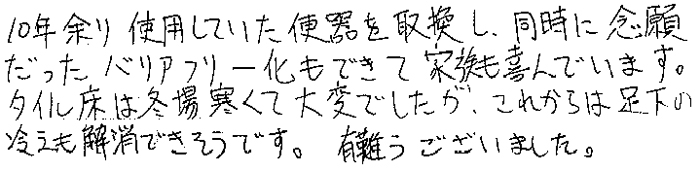 10年余り使用していた便器を取換し、同時に念願
だったバリアフリー化もできて家族も喜んでいます。
タイル床は冬場寒くて大変でしたが、これからは足下の
冷えも解消できそうです。 有難うございました。